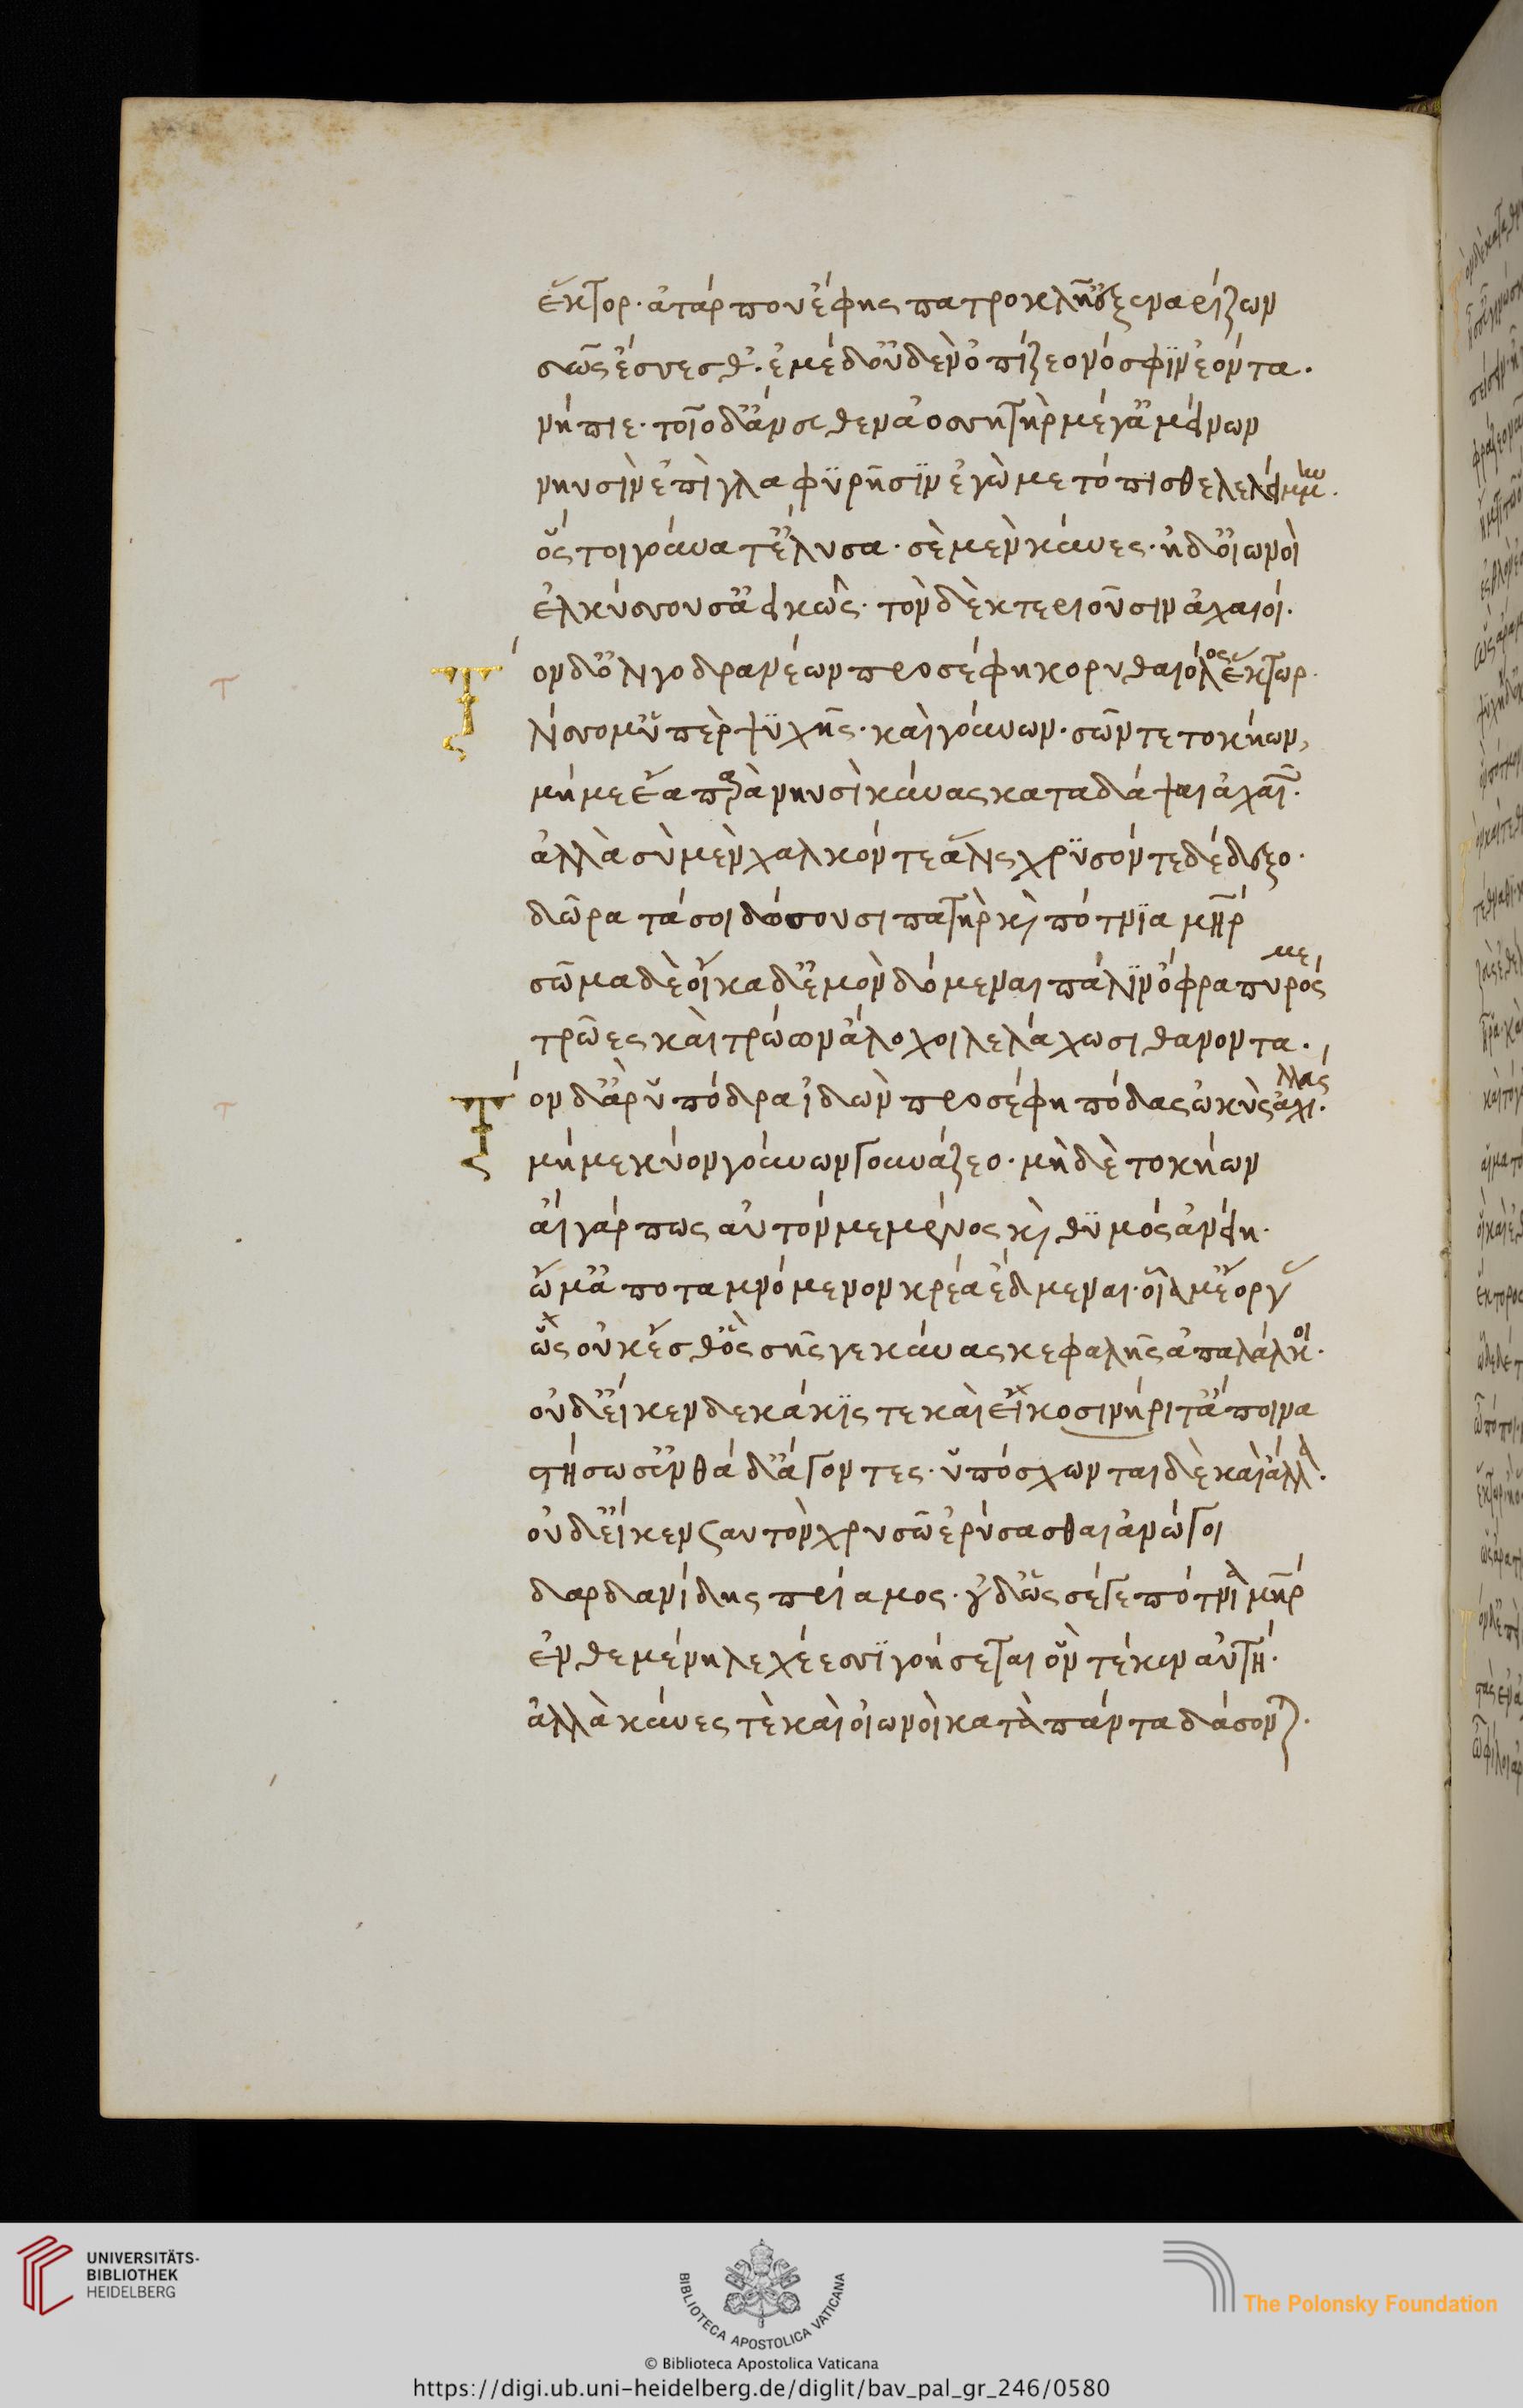 ἕκτορ. ἀτάρ που ἔφης πατροκλῆ᾽ ἐξεναρίζων
σῶς ἔσσεσθ᾽. ἐμὲ δ᾽ οὐδὲν ὀπίζεο νόσφιν ἐόντα.
νήπιε. τοῖο δ᾽ ἄνευθεν ἀοσσητὴρ μέγ᾽ ἀμείνων
νηυσὶν ἐπὶ γλαφυρῆσιν ἐγὼ μετόπισθε λελείμμην.
ὅς τοι γούνατ᾽ ἔλυσα. σὲ μὲν κύνες. ἠδ᾽ οἰωνοὶ
ἑλκύσσουσ᾽ ἀεικῶς. τὸν δὲ κτεριοῦσιν ἀχαιοί.
Τὸν δ᾽ ὀλιγοδρανέων προσέφη κορυθαίολος ἕκτωρ.
λίσσομ᾽ ὑπὲρ ψυχῆς. καὶ γούνων. σῶν τε τοκήων,
μή με ἔα παρὰ νηυσὶ κύνας καταδάψαι ἀχαιῶν.
ἀλλὰ σὺ μὲν χαλκόν τε ἅλις χρυσόν τε δέδεξο.
δῶρα τά σοι δώσουσι πατὴρ καὶ πότνια μήτηρ
σῶμα δὲ οἴκαδ᾽ ἐμὸν δόμεναι πάλιν ὄφρα πυρός με
τρῶες καὶ τρώων ἄλοχοι λελάχωσι θανοντα.
Τὸν δ᾽ ἄρ᾽ ὑπόδρα ἰδὼν προσέφη πόδας ὠκὺς ἀχιλλεύς.
μή με κύον γούνων γουνάζεο. μὴ δὲ τοκήων
αἲ γάρ πως αὐτόν με μένος καὶ θυμός ἀνείη.
ὤμ᾽ ἀποταμνόμενον κρέα ἔδμεναι. οἷά μ᾽ ἔοργας
ὡς οὐκ ἔσθ᾽ ὃς σῆς γε κύνας κεφαλῆς ἀπαλάλκοι.
οὐδ᾽ εἴ κεν δεκάκις τε καὶ εἰκοσινήριτ᾽ ἄποινα
στήσωσ᾽ ἐνθάδ᾽ ἄγοντες. ὑπόσχωνται δὲ καὶ ἄλλα.
οὐδ᾽ εἴ κεν σ᾽ αυτὸν χρυσῶ ἐρύσασθαι ἀνώγοι
δαρδανίδης πρίαμος. οὐδ᾽ ὣς σέγε πότνια μήτηρ
ἐνθεμένη λεχέεσσι γοήσεται ὃν τέκεν αὐτή.
ἀλλὰ κύνες τὲ καὶ οἰωνοὶ κατὰ πάντα δάσονται.
UNIVERSITÄTS-
BIBLIOTHEK
HEIDELBERG
BIBLIOTECA APOSTOLICA VATICANA
The Polonsky Foundation
© Biblioteca Apostolica Vaticana
https://digi.ub.uni-heidelberg.de/diglit/bav_pal_gr_246/0580